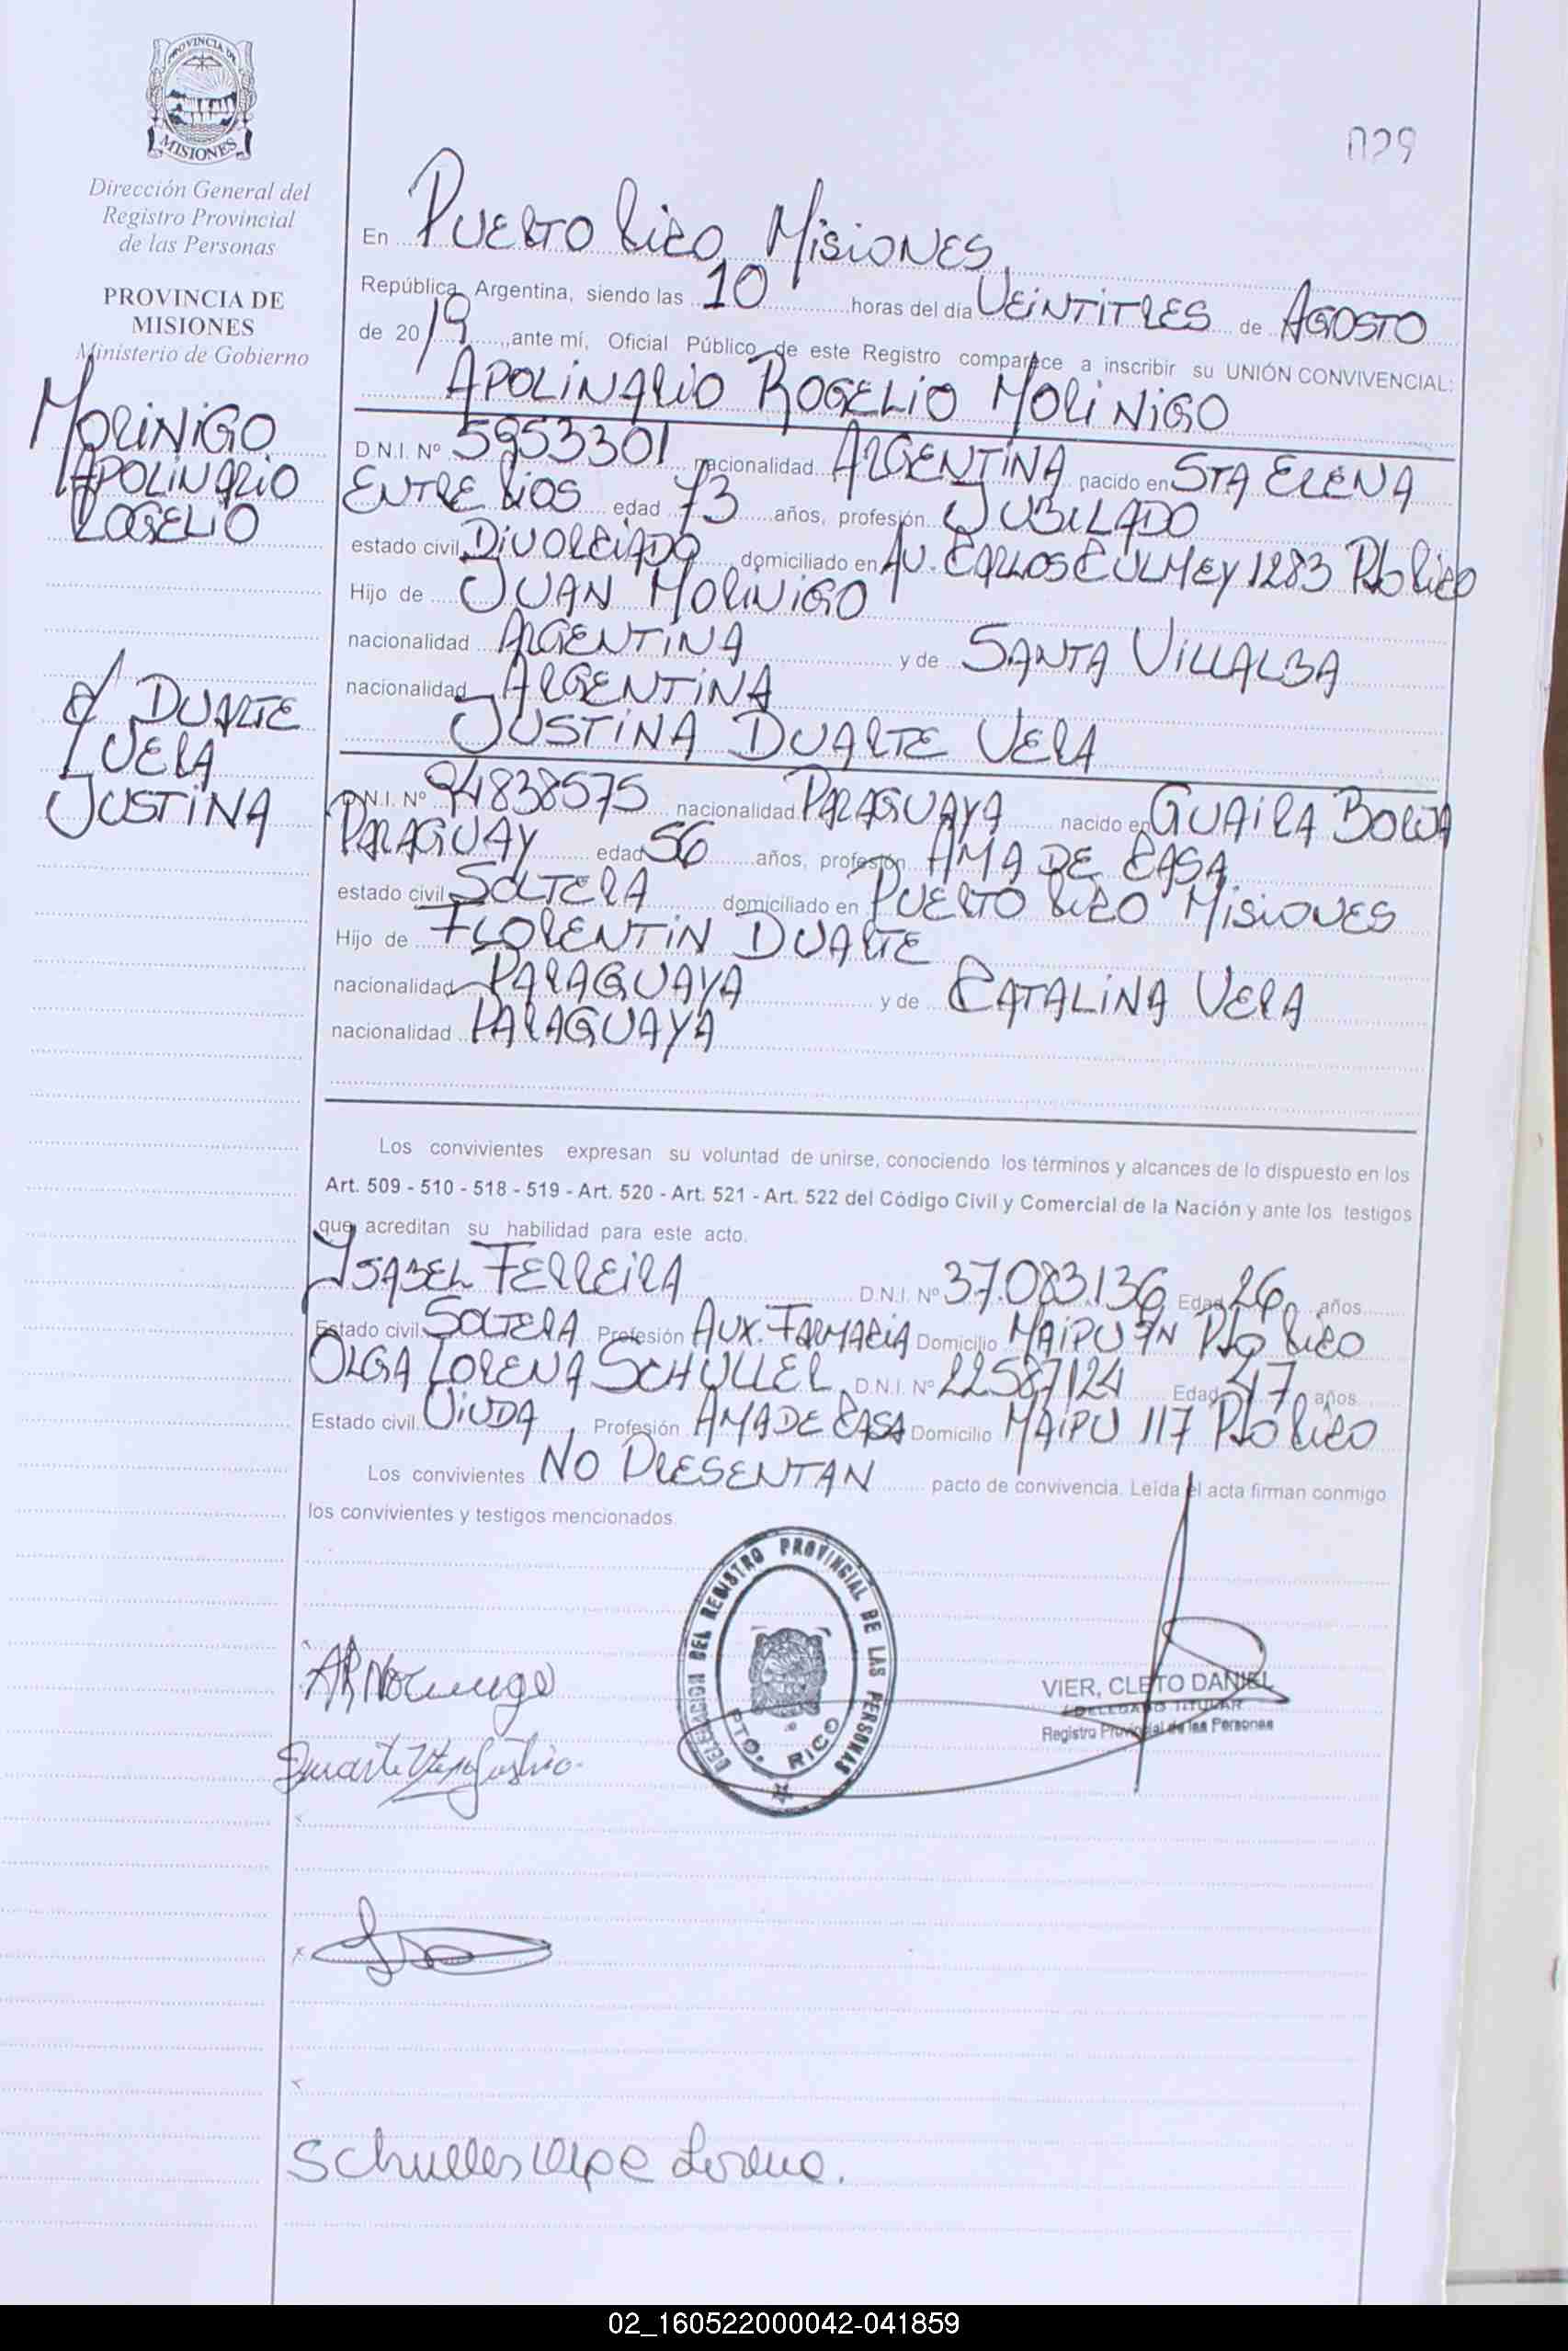 PROVINCIA DE
MISIONES
029
Dirección General del
Registro Provincial
de las Personas
PROVINCIA DE
MISIONES
Ministerio de Gobierno
MORINIGO
APOLINARIO
ROGELIO
C/ DUARTE
VERA
JUSTINA
En PUERTO RICO, MISIONES,
República Argentina, siendo las 10 horas del día VEINTITRES de AGOSTO
de 20/19, ante mí, Oficial Público de este Registro comparece a inscribir su UNIÓN CONVIVENCIAL:
APOLINARIO ROGELIO MORINIGO
D.N.I. Nº 5953301 nacionalidad ARGENTINA nacido en STA ELENA
ENTRE RIOS edad 73 años, profesión JUBILADO
estado civil DIVORCIADO domiciliado en AV. CARLOS CULMEY 1283 Pto RICO
Hijo de JUAN MORINIGO
nacionalidad ARGENTINA y de SANTA VILLALBA
nacionalidad ARGENTINA
JUSTINA DUARTE VERA
D.N.I. Nº 94838575 nacionalidad PARAGUAYA nacido en GUAIRA BORJA
PARAGUAY edad 56 años, profesión AMA DE CASA
estado civil SOLTERA domiciliado en PUERTO RICO MISIONES
Hijo de FLORENTIN DUARTE
nacionalidad PARAGUAYA y de CATALINA VERA
nacionalidad PARAGUAYA
Los convivientes expresan su voluntad de unirse, conociendo los términos y alcances de lo dispuesto en los
Art. 509 - 510 - 518 - 519 - Art. 520 - Art. 521 - Art. 522 del Código Civil y Comercial de la Nación y ante los testigos
que acreditan su habilidad para este acto.
YSABEL FERREIRA D.N.I. Nº 37.083.136 Edad 26 años
Estado civil SOLTERA Profesión AUX. FARMACIA Domicilio MAIPU SN Pto RICO
OLGA LORENA SCHULLER D.N.I. Nº 22587124 Edad 47 años
Estado civil VIUDA Profesión AMA DE CASA Domicilio MAIPU 117 Pto RICO
Los convivientes NO PRESENTAN pacto de convivencia. Leída el acta firman conmigo
los convivientes y testigos mencionados.
DELEGACION DEL REGISTRO PROVINCIAL DE LAS PERSONAS
PTO. RICO
VIER, CLETO DANIEL
DELEGADO TITULAR
Registro Provincial de las Personas
Duarte Vera Justina
Schuller Olga Lorena.
02_160522000042-041859